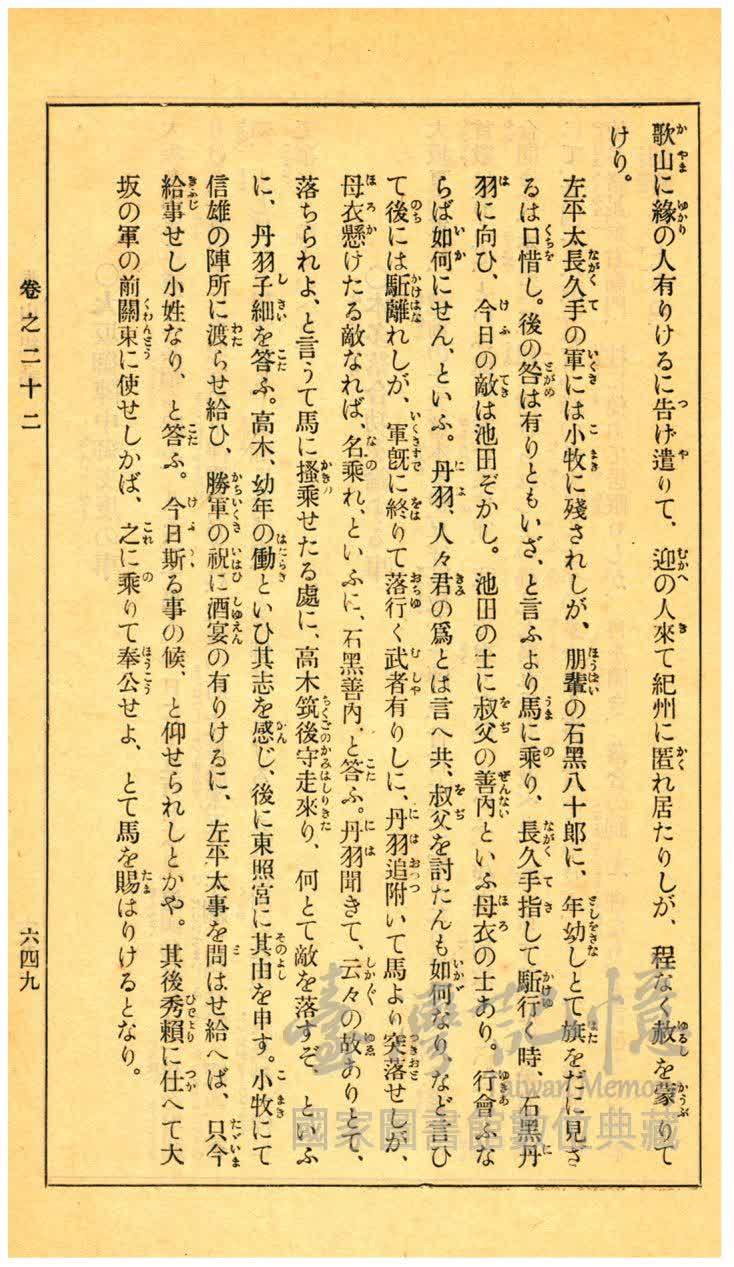 歌山に緣の人有りけるに告げ遣りて、迎の人來て紀州に匿れ居たりしが、程なく赦を蒙りて
けり。
左平太長久手の軍には小牧に殘されしが、朋輩の石黑八十郎に、年幼しとて旗をだに見ざ
るは口惜し。後の咎は有りともいざ、と言ふより馬に乘り、長久手指して駈行く時、石黑丹
羽に向ひ、今日の敵は池田ぞかし。池田の士に叔父の善內といふ母衣の士あり。行會ふな
らば如何にせん、といふ。丹羽、人々君の爲とは言へ共、叔父を討たんも如何なり、など言ひ
て後には駈離れしが、軍旣に終りて落行く武者有りしに、丹羽追附いて馬より突落せしが、
母衣懸けたる敵なれば、名乘れ、といふに、石黑善內、と答ふ。丹羽聞きて、云々の故ありとて、
落ちられよ、と言うて馬に搔乘せたる處に、高木筑後守走來り、何とて敵を落すぞ、といふ
に、丹羽子細を答ふ。高木、幼年の働といひ其志を感じ、後に東照宮に其由を申す。小牧にて
信雄の陣所に渡らせ給ひ、勝軍の祝に酒宴の有りけるに、左平太事を問はせ給へば、只今
給事せし小姓なり、と答ふ。今日斯る事の候、と仰せられしとかや。其後秀賴に仕へて大
坂の軍の前關東に使せしかば、之に乘りて奉公せよ、とて馬を賜はりけるとなり。
卷之二十二
六四九
臺灣記憶
Taiwan Memory
國家圖書館數位典藏